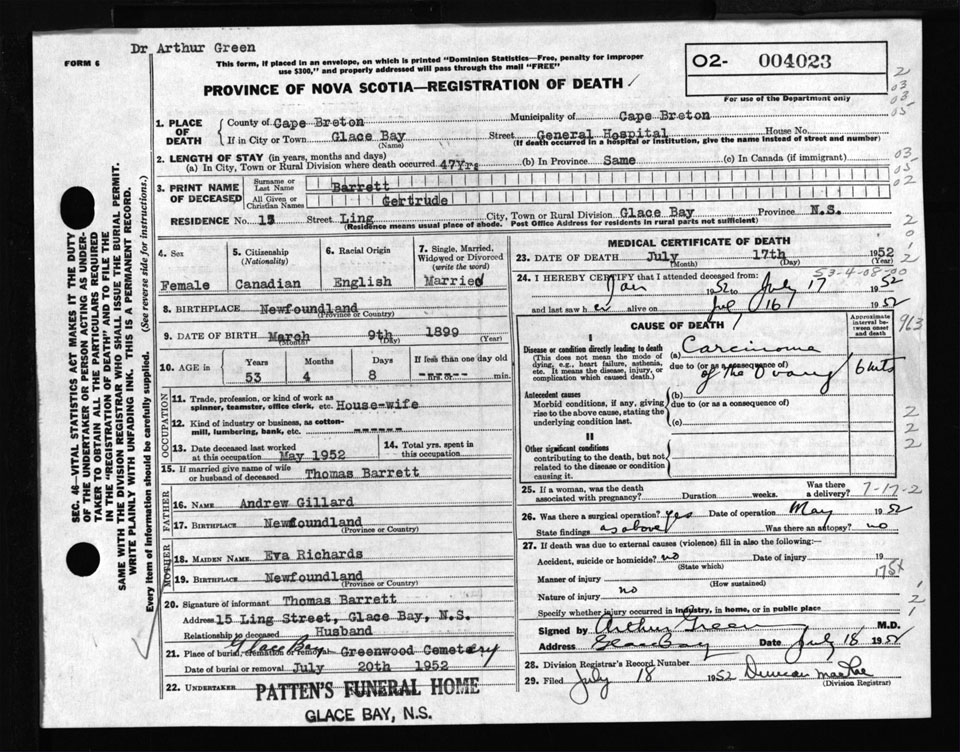 Dr Arthur Green
FORM 6
This form, if placed in an envelope, on which is printed "Dominion Statistics—Free, penalty for improper
use $300," and properly addressed will pass through the mail "FREE"
O2- 004023
For use of the Department only
PROVINCE OF NOVA SCOTIA—REGISTRATION OF DEATH
1. PLACE OF DEATH
County of Cape Breton Municipality of Cape Breton
If in City or Town Glace Bay (Name) Street General Hospital House No.
(If death occurred in a hospital or institution, give the name instead of street and number)
2. LENGTH OF STAY (in years, months and days)
(a) In City, Town or Rural Division where death occurred 47Yrs (b) In Province Same (c) In Canada (if immigrant)
3. PRINT NAME OF DECEASED
Surname or Last Name Barrett
All Given or Christian Names Gertrude
RESIDENCE No. 15 Street Ling City, Town or Rural Division Glace Bay Province N.S.
(Residence means usual place of abode. Post Office Address for residents in rural parts not sufficient)
4. Sex
Female
5. Citizenship (Nationality)
Canadian
6. Racial Origin
English
7. Single, Married, Widowed or Divorced (write the word)
Married
8. BIRTHPLACE Newfoundland
(Province or Country)
9. DATE OF BIRTH March 9th 1899
(Month) (Day) (Year)
10. AGE in Years Months Days If less than one day old
53 4 8 min.
OCCUPATION
11. Trade, profession, or kind of work as
spinner, teamster, office clerk, etc. House-wife
12. Kind of industry or business, as cotton-
mill, lumbering, bank, etc. ------
13. Date deceased last worked
at this occupation May 1952
14. Total yrs. spent in
this occupation
15. If married give name of wife
or husband of deceased Thomas Barrett
FATHER
16. NAME Andrew Gillard
17. BIRTHPLACE Newfoundland
(Province or Country)
MOTHER
18. MAIDEN NAME Eva Richards
19. BIRTHPLACE Newfoundland
(Province or Country)
20. Signature of informant Thomas Barrett
Address 15 Ling Street, Glace Bay, N.S.
Relationship to deceased Husband
Glace Bay
21. Place of burial, cremation or removal Greenwood Cemetery
Date of burial or removal July 20th 1952
22. UNDERTAKER PATTEN'S FUNERAL HOME
GLACE BAY, N.S.
MEDICAL CERTIFICATE OF DEATH
23. DATE OF DEATH July 17th 1952
(Month) (Day) (Year)
53-4-08-00
24. I HEREBY CERTIFY that I attended deceased from:
Jan 1952 to July 17 1952
and last saw her alive on July 16 1952
CAUSE OF DEATH
Approximate interval between onset and death
I
Disease or condition directly leading to death
(This does not mean the mode of
dying, e.g., heart failure, asthenia,
etc. It means the disease, injury, or
complication which caused death.)
(a) Carcinoma
due to (or as a consequence of)
of the Ovary 6 mts
Antecedent causes
Morbid conditions, if any, giving
rise to the above cause, stating the
underlying condition last.
(b)
due to (or as a consequence of)
(c)
II
Other significant conditions
contributing to the death, but not
related to the disease or condition
causing it.
25. If a woman, was the death
associated with pregnancy? Duration weeks. Was there a delivery? 7-17-2
26. Was there a surgical operation? yes Date of operation May 1952
State findings as above Was there an autopsy? no
27. If death was due to external causes (violence) fill in also the following:
Accident, suicide or homicide? no Date of injury 19
(State which)
175x
Manner of injury
(How sustained)
Nature of injury no
Specify whether injury occurred in industry, in home, or in public place
Signed by Arthur Green M.D.
Address Glace Bay Date July 18 1952
28. Division Registrar's Record Number
29. Filed July 18 1952 Duncan MacRae
(Division Registrar)
SEC. 46—VITAL STATISTICS ACT MAKES IT THE DUTY
OF THE UNDERTAKER OR PERSON ACTING AS UNDER-
TAKER TO OBTAIN ALL THE PARTICULARS REQUIRED
IN THE "REGISTRATION OF DEATH" AND TO FILE THE
SAME WITH THE DIVISION REGISTRAR WHO SHALL ISSUE THE BURIAL PERMIT.
WRITE PLAINLY WITH UNFADING INK. THIS IS A PERMANENT RECORD.
Every item of information should be carefully supplied. (See reverse side for instructions.)
2
03
03
05
03
05
02
2
0
1
2
963
2
2
2
1
1